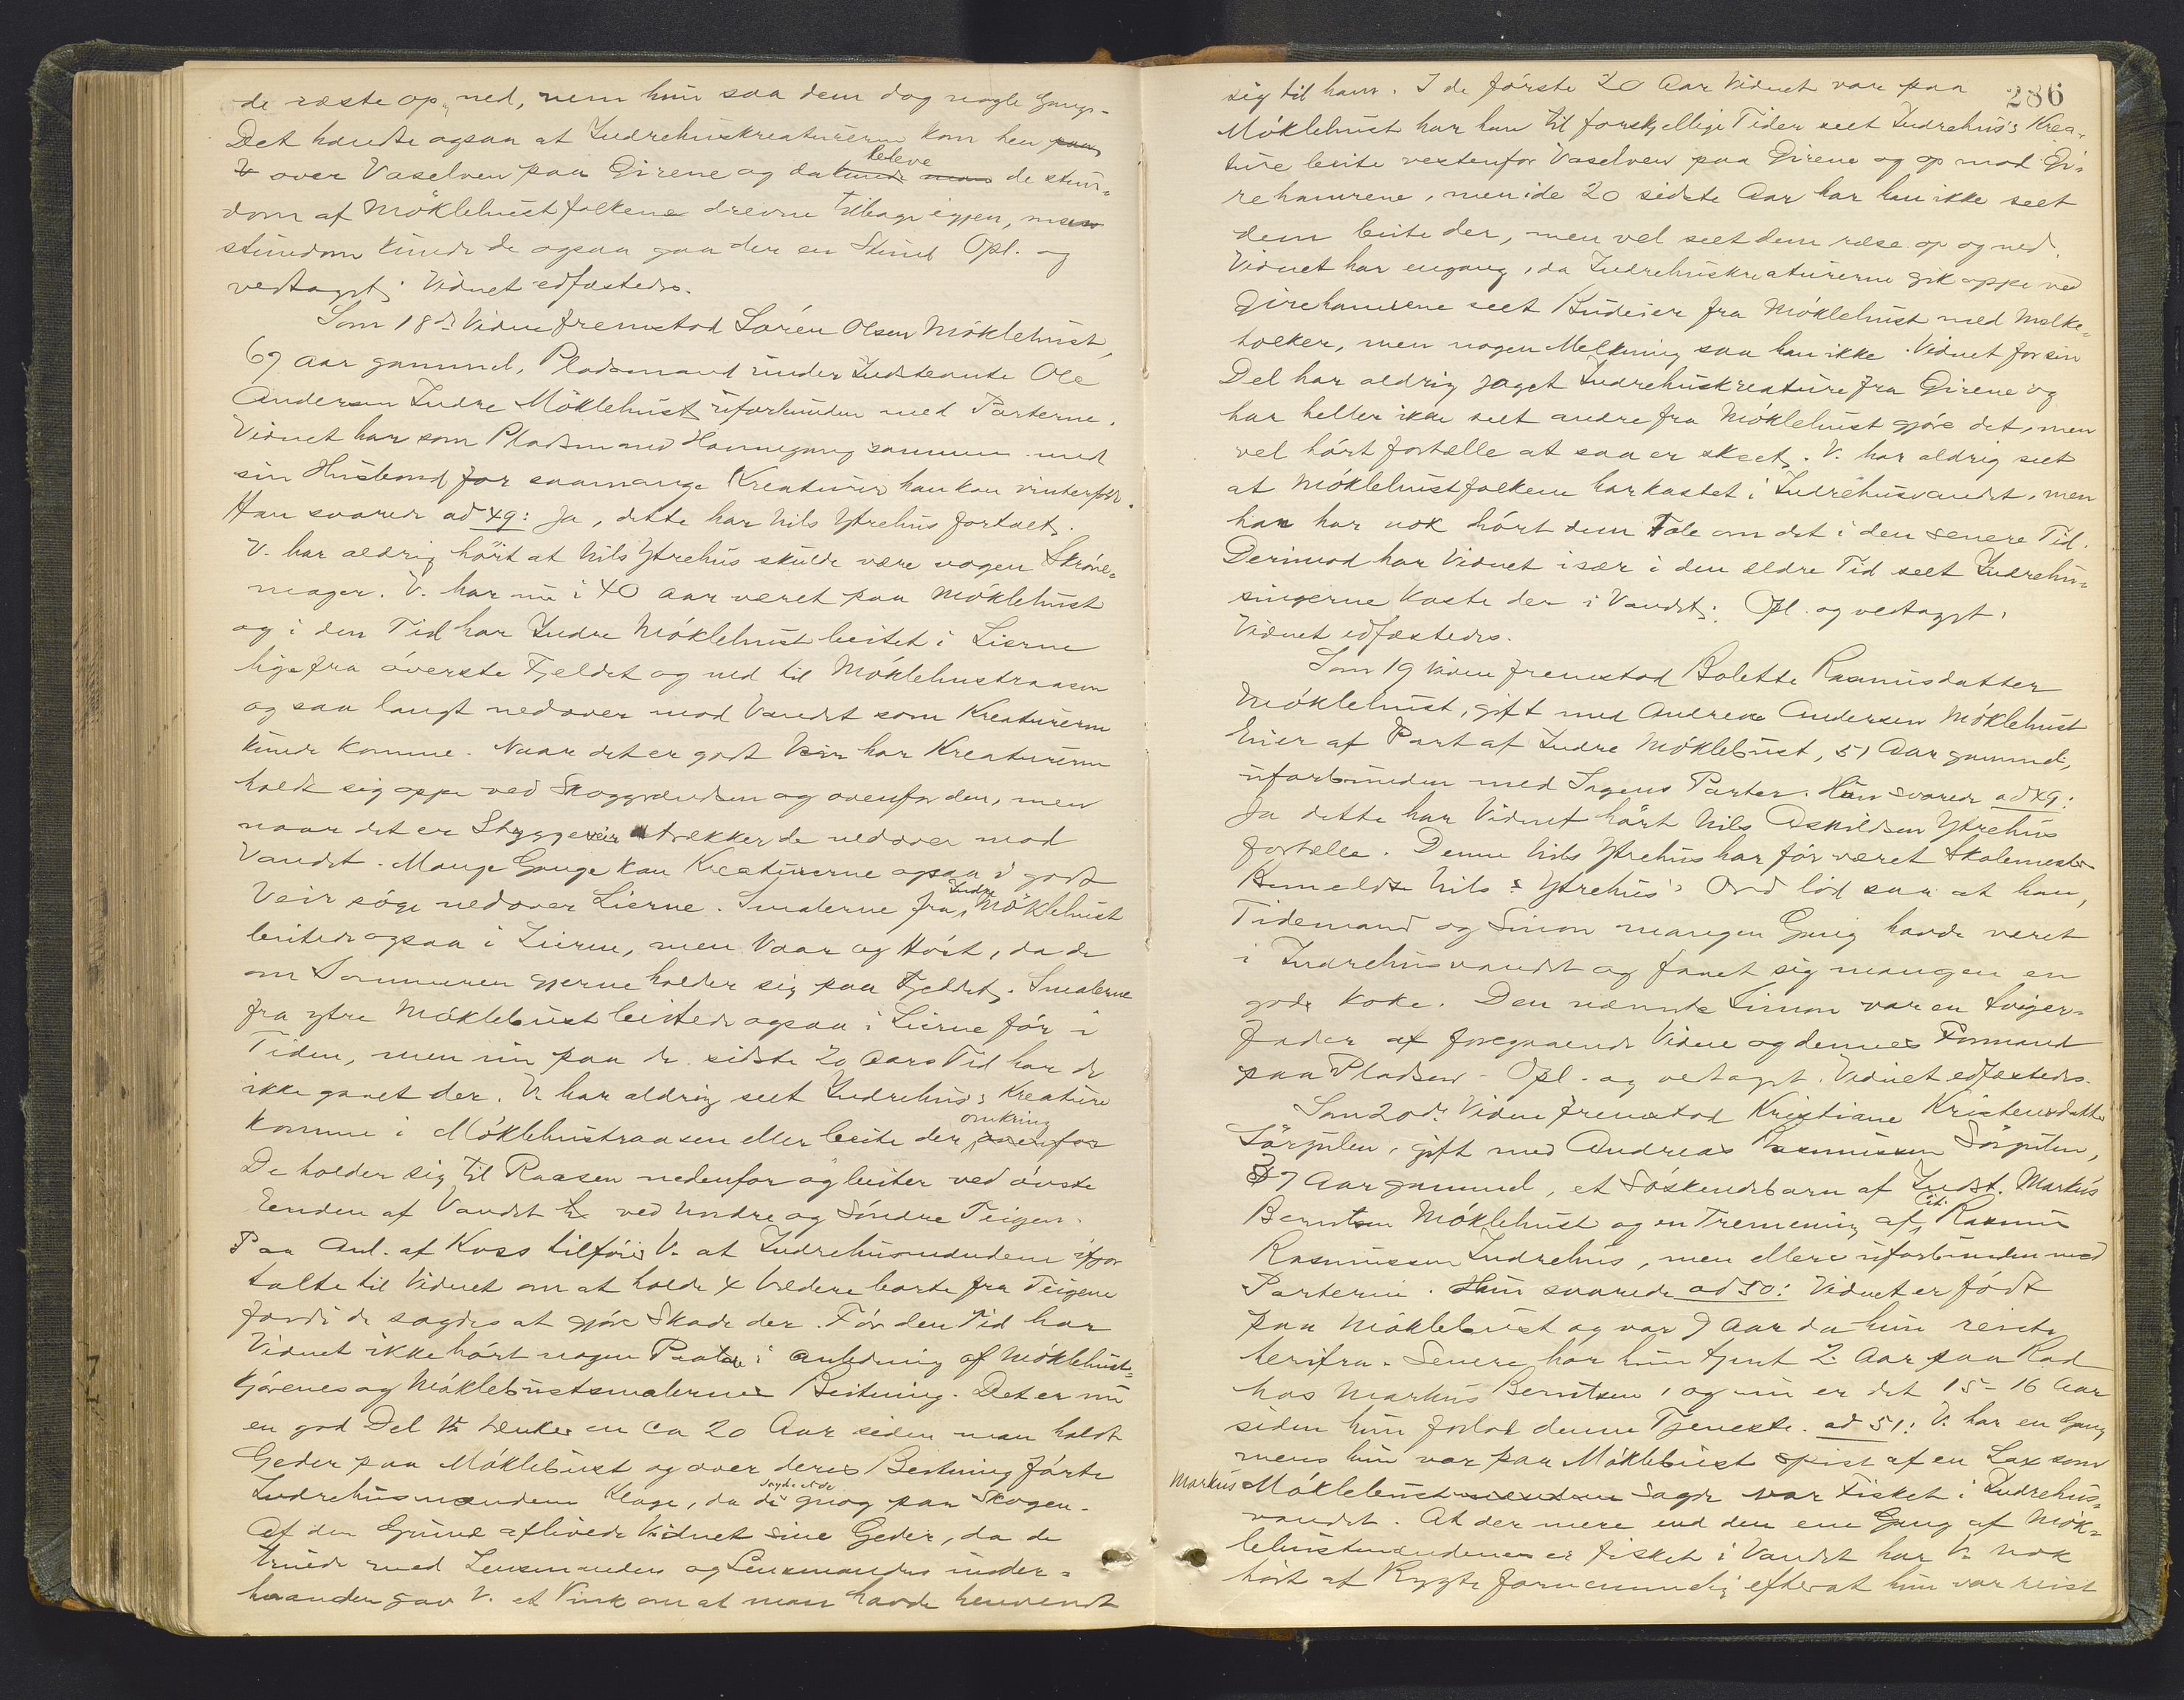 de ræste op, ned, nem hun saa dem dog nogle Gange.
Det hændte ogsaa at Indrehuskreaturerne kom hen paa
V over Vaselven paa Girene og da kunde man bleve de stun-
dom af Möklebustfolkene drevne tilbage igjen, men
stundom kunde de ogsaa gaa der en Stund Opl. og
vedtaget. Vidnet edfæstedes.
Som 18de Vidne fremstod Sörén Olsen Möklebust,
67 Aar gammel, Pladsmand under Indstevnte Ole
Andersen Indre Möklebust uforbunden med Parterne.
Vidnet har som Pladsmand Havnegang sammen med
sin Husbond for saamange Kreaturer han kan vinterföde.
Han svarede ad 49: Ja, dette har Nils Ytrehus fortalt.
V. har aldrig hört at Nils Ytrehus skulde være nogen Skröne-
mager. V. har nu i 40 Aar været paa Möklebust
og i den Tid har Indre Möklebust beitet i Lierne
lige fra överste Fjeldet og ned til Möklebustraasen
og saa langt nedover mod Vandet som Kreaturerne
kunde komme. Naar det er godt Veir har Kreaturerne
holdt sig oppe ved Skoggrændsen og ovenfor den, men
naar det er Styggeveir trækker de nedover mod
Vandet. Mange Gange kan Kreaturerne ogsaa i godt
Veir söge nedover Lierne. Smalerne fra Indre Möklebust
beitede ogsaa i Lierne, men Vaar og Höst, da de
om Sommeren gjerne holder sig paa Fjeldet. Smalerne
fra ytre Möklebust beitede ogsaa i Lierne för i
Tiden, men nu paa de sidste 20 Aars Tid har de
ikke gaaet der. V. har aldrig seet Indrehus's Kreature
komme i Möklebustraasen eller beite der omkring ovenfor
De holder sig til Raasen nedenfor og beiter ved övste
Enden af Vandet ved Nordre og Söndre Teigen.
Paa Anl. af Koss tilföies V. at Indrehusmændene ifjor
talte til Vidnet om at holde 4 Vædere borte fra Teigene
fordi de sagdes at gjöre Skade der. För den Tid har
Vidnet ikke hört nogen Paatale i Anledning af Möklebust-
kjörenes og Möklebustsmalernes Beitning. Det er nu
en god Del V. tænker en ca 20 Aar siden man holdt
Geder paa Möklebust og over deres Beitning förte
Indrehusmændene Klage, da de sagde at de gnog paa Skogen.
Af den Grund aflivede Vidnet sine Geder, da de
truede med Lensmanden og Lensmandens under-
haanden gav V. et Vink om at man havde henvendt
286
sig til ham. I de förste 20 Aar Vidnet var paa
Möklebust har han til forskjellige Tider seet Indrehus's Krea-
ture beite vestenfor Vaselven paa Girene og op mod Gi-
rehamrene, men i de 20 sidste Aar har han ikke seet
dem beite der, men vel seet dem ræse op og ned.
Vidnet har engang, da Indrehuskreaturerne gik oppe ved
Girehamrene seet Budeier fra Möklebust med Melke-
kolker, men nogen Melkning saa han ikke. Vidnet for sin
Del har aldrig jaget Indrehuskreature fra Girene og
har heller ikke seet andre fra Möklebust gjöre det, men
vel hört fortælle at saa er skeet. V. har aldrig seet
at Möklebustfolkene har kastet i Indrehusvandet, men
han har nok hört dem tale om det i den senere Tid.
Derimod har Vidnet især i den ældre Tid seet Indrehu-
singerne kaste der i Vandet. Opl. og vedtaget.
Vidnet edfæstedes.
Som 19 Vidne fremstod Bolette Rasmusdatter
Möklebust, gift med Andreas Andersen Möklebust
Eier af Part af Indre Möklebust, 51 Aar gammel,
uforbunden med Sagens Parter. Hun svarede ad 49:
Ja dette har Vidnet hört Nils Askildsen Ytrehus
fortælle. Denne Nils Ytrehus har för været Skolemester
Nils Ytrehus's Ord löd saa at han,
Tidemand og Simon mangen Gang havde været
i Indrehusvandet og fanet sig mangen en
gode Koke. Den nævnte Simon var en Sviger-
fader af foregaaende Vidne og dennes Formand
paa Pladsen. Opl. og vedtaget. Vidnet edfæstedes.
Som 20de Vidne fremstod Kristiane Kristensdatter
Sörgulen, gift med Andreas Rasmussen Sörgulen,
37 Aar gammel, et Söskendebarn af Indst. Markus
Berntsen Möklebust og en Tremening af Cit. Rasmus
Rasmussen Indrehus, men ellers uforbunden med
Parterne. Hun svarede ad 50: Vidnet er födt
paa Möklebust og var 9 Aar da hun reiste
herifra. Senere har hun tjent 2 Aar paa Rad
hos Markus Berntsen, og nu er det 15-16 Aar
siden hun forlod denne Tjeneste. ad 51: V. har en Gang
mens hun var paa Möklebust spist af en Lax som
Markus Möklebust sagde var fisket i Indrehus-
vandet. At der mere end den ene Gang af Mök-
lebustmændene er fisket i Vandet har V. nok
hört af Rygte fornemmelig efterat hun var reist